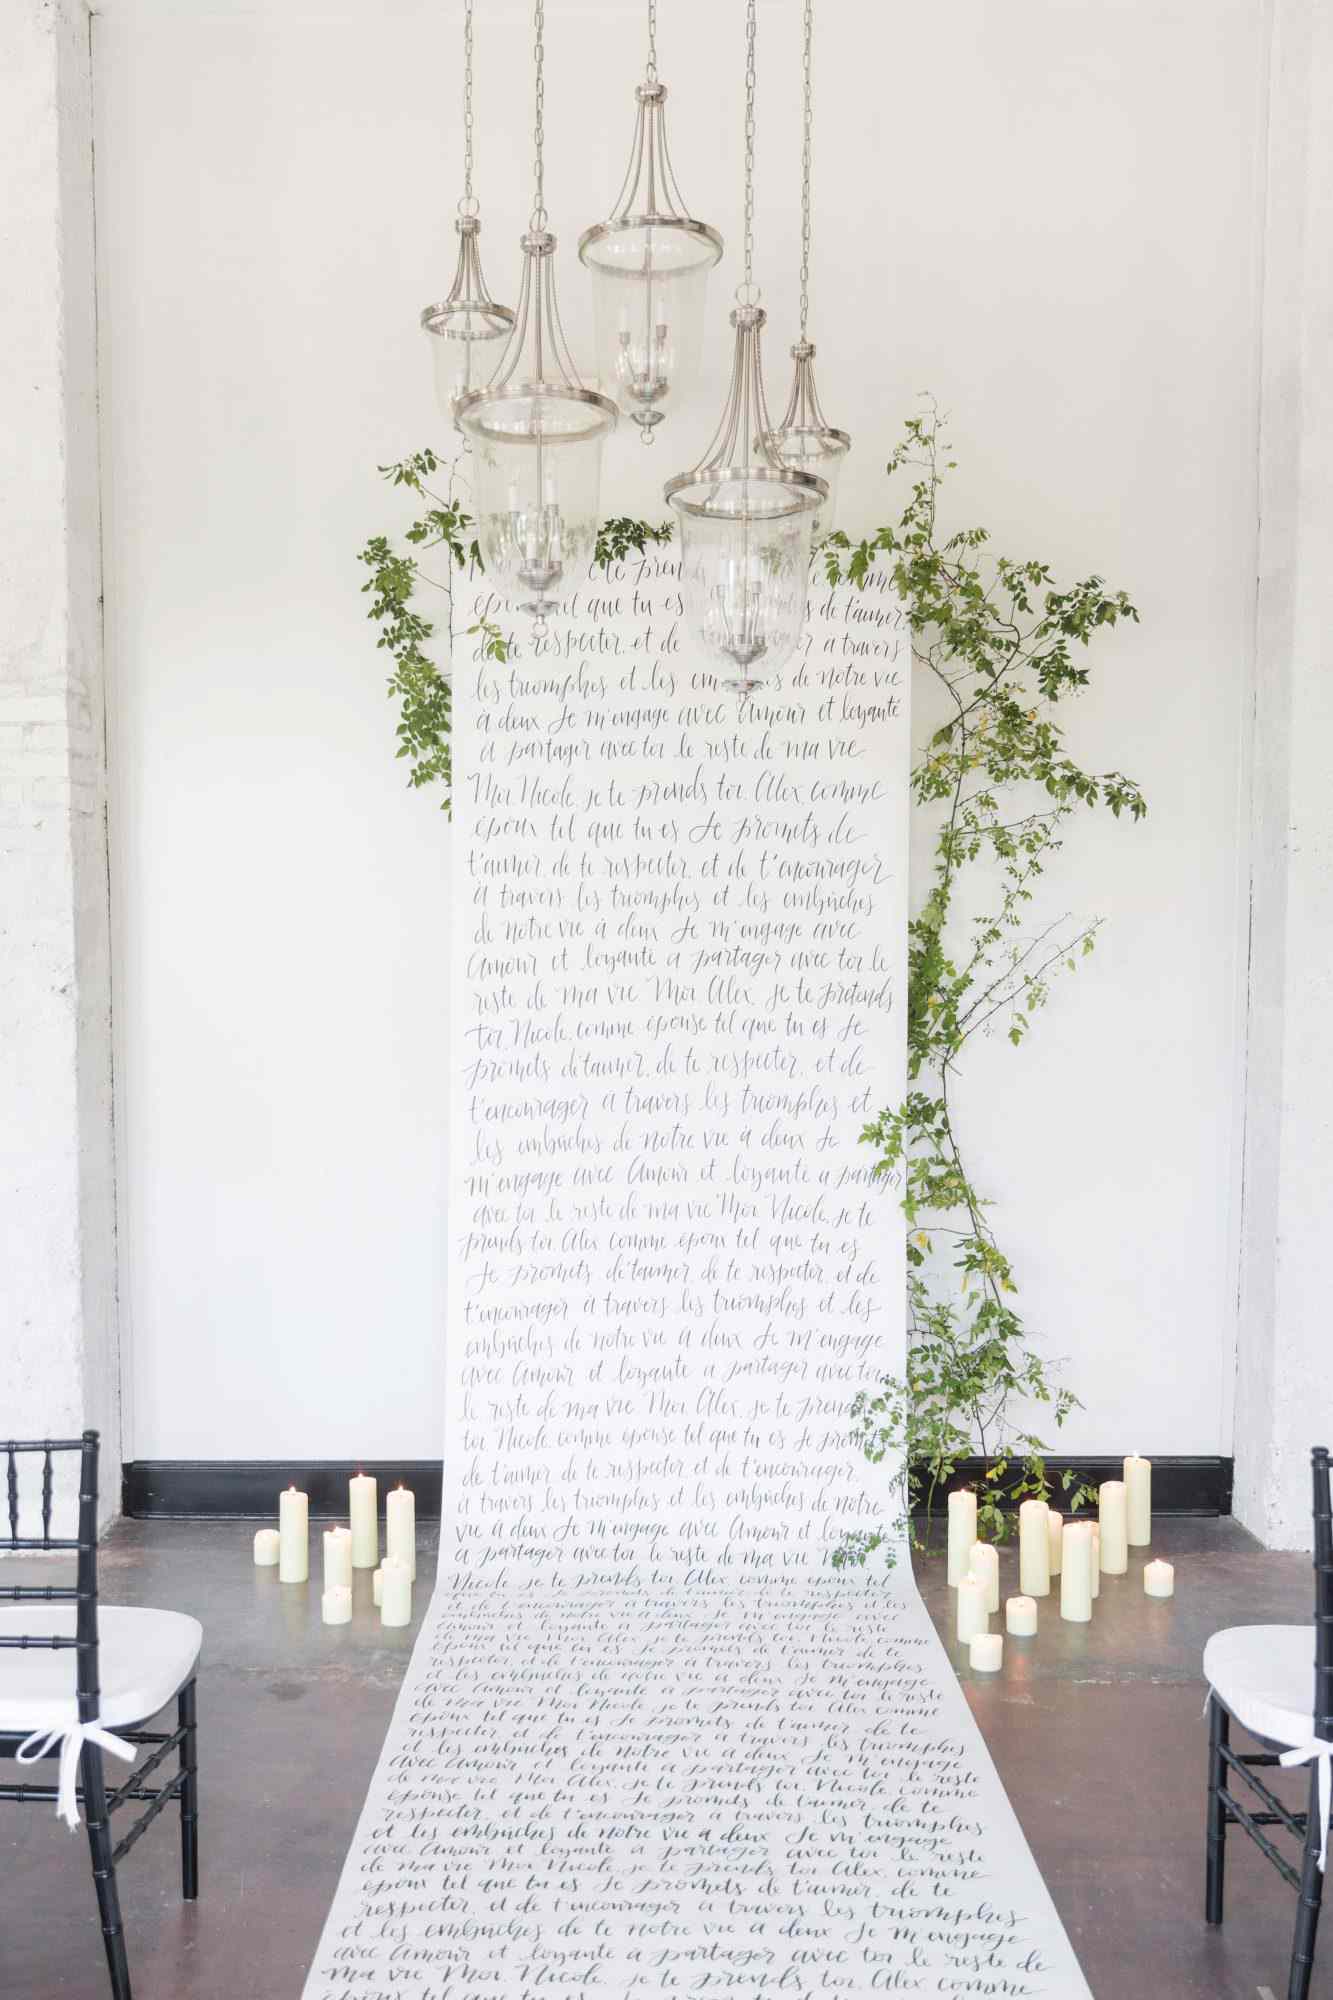 te pren comme
que tu es s de t'aimer,
de te respecter, et de er a travers
les triomphes et les em s de notre vie
à deux Je m'engage avec Amour et loyauté
a partager avec toi le reste de ma vie.
Moi, Nicole, je te prends toi, Alex, comme
époux tel que tu es Je promets de
t'aimer, de te respecter, et de t'encourager
à travers les triomphes et les embûches
de notre vie à deux Je m'engage avec
Amour et loyauté a partager avec toi le
reste de ma vie Moi Alex, je te pretends
toi, Nicole, comme épouse tel que tu es Je
promets de t'aimer, de te respecter, et de
t'encourager a travers les triomphes et
les embûches de notre vie à deux Je
m'engage avec Amour et loyauté a partager
avec toi le reste de ma vie Moi Nicole, je te
prends toi, Alex comme époux tel que tu es
Je promets de t'aimer, de te respecter, et de
t'encourager à travers les triomphes et les
embûches de notre vie a deux Je m'engage
avec Amour et loyauté a partager avec toi
le reste de ma vie Moi Alex, je te prends
toi Nicole, comme épouse tel que tu es Je promets
de t'aimer de te respecter et de t'encourager,
à travers les triomphes et les embûches de notre
vie à deux Je m'engage avec Amour et loyauté
a partager avec toi le reste de ma vie Moi
Nicole je te prends toi Alex comme époux tel
que tu es Je promets de t'aimer de te respecter
et de t'encourager a travers les triomphes et les
embûches de notre vie a deux Je m'engage avec
Amour et loyauté a partager avec toi le reste
de ma vie Moi Alex, je te prends toi, Nicole comme
épouse tel que tu es Je promets de t'aimer de te
respecter, et de t'encourager à travers les triomphes
et les embûches de notre vie a deux Je m'engage
avec Amour et loyauté a partager avec toi le reste
de ma vie Moi Nicole je te prends toi Alex comme
époux tel que tu es Je promets de t'aimer, de te
respecter et de t'encourager a travers les triomphes
et les embûches de notre vie a deux Je m'engage
avec Amour et loyauté a partager avec toi le reste
de ma vie Moi Alex, je te prends toi, Nicole, comme
épouse tel que tu es Je promets de t'aimer, de te
respecter, et de t'encourager a travers les triomphes
et les embûches de notre vie a deux Je m'engage
avec Amour et loyauté a partager avec toi le reste
de ma vie Moi Nicole, je te prends toi Alex, comme
époux tel que tu es Je promets de t'aimer, de te
respecter, et de t'encourager a travers les triomphes
et les embûches de te notre vie a deux Je m'engage
avec Amour et loyauté a partager avec toi le reste de
ma vie Moi, Nicole, je te prends toi, Alex comme
époux tel que tu es Je promets de t'aimer de te